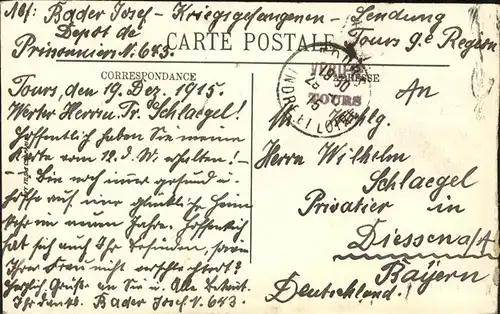 Abf: Bader Josef - Kriegsgefangenen - Sendung
Depot de
Prisonniers N. 683.
Tours 9e Region
CARTE POSTALE
CORRESPONDANCE
ADRESSE
TOURS
INDRE ET LOIRE
Tours, den 19. Dez. 1915.
Werter Herr Fr. Schlaegel!
Hoffentlich haben Sie meine
Karte vom 12. d. M. erhalten!
Bin noch immer gesund u.
hoffe auf eine glückliche Heim
kehr im neuen Jahre. Hoffentlich
hat sich auch Ihr Befinden, sowie
Ihrer Frau nicht
Herzlich Grüße an Sie u. Alle
Ihr dankb. Bader Josef N. 683.
An
Herrn Wilhelm
Schlaegel
Privatier in
Diessen a/A
Bayern
Deutschland!